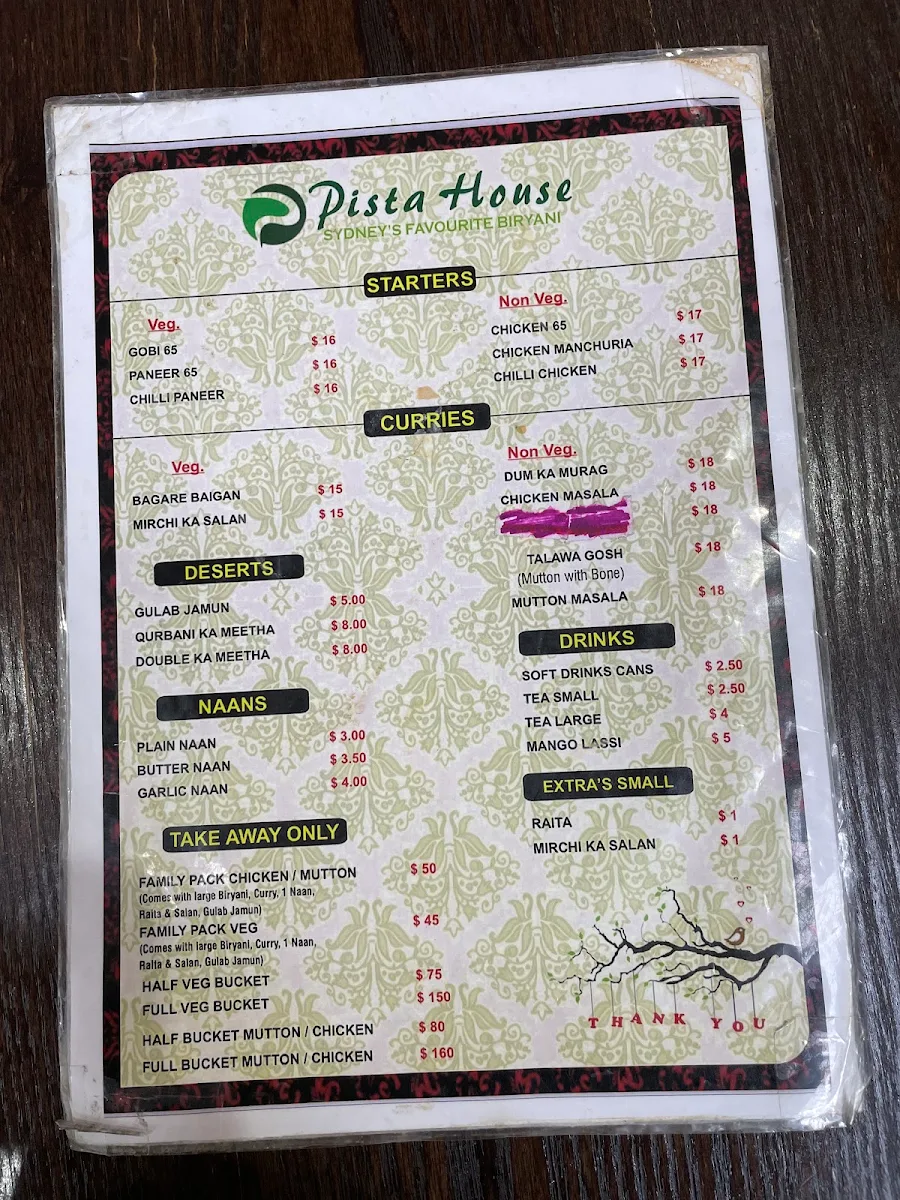 Pista House
SYDNEY'S FAVOURITE BIRYANI
STARTERS
Veg.
GOBI 65 $ 16
PANEER 65 $ 16
CHILLI PANEER $ 16
Non Veg.
CHICKEN 65 $ 17
CHICKEN MANCHURIA $ 17
CHILLI CHICKEN $ 17
CURRIES
Veg.
BAGARE BAIGAN $ 15
MIRCHI KA SALAN $ 15
Non Veg.
DUM KA MURAG $ 18
CHICKEN MASALA $ 18
$ 18
TALAWA GOSH $ 18
(Mutton with Bone)
MUTTON MASALA $ 18
DESERTS
GULAB JAMUN $ 5.00
QURBANI KA MEETHA $ 8.00
DOUBLE KA MEETHA $ 8.00
NAANS
PLAIN NAAN $ 3.00
BUTTER NAAN $ 3.50
GARLIC NAAN $ 4.00
TAKE AWAY ONLY
FAMILY PACK CHICKEN / MUTTON $ 50
(Comes with large Biryani, Curry, 1 Naan,
Raita & Salan, Gulab Jamun)
FAMILY PACK VEG $ 45
(Comes with large Biryani, Curry, 1 Naan,
Raita & Salan, Gulab Jamun)
HALF VEG BUCKET $ 75
FULL VEG BUCKET $ 150
HALF BUCKET MUTTON / CHICKEN $ 80
FULL BUCKET MUTTON / CHICKEN $ 160
DRINKS
SOFT DRINKS CANS $ 2.50
TEA SMALL $ 2.50
TEA LARGE $ 4
MANGO LASSI $ 5
EXTRA'S SMALL
RAITA $ 1
MIRCHI KA SALAN $ 1
THANK YOU